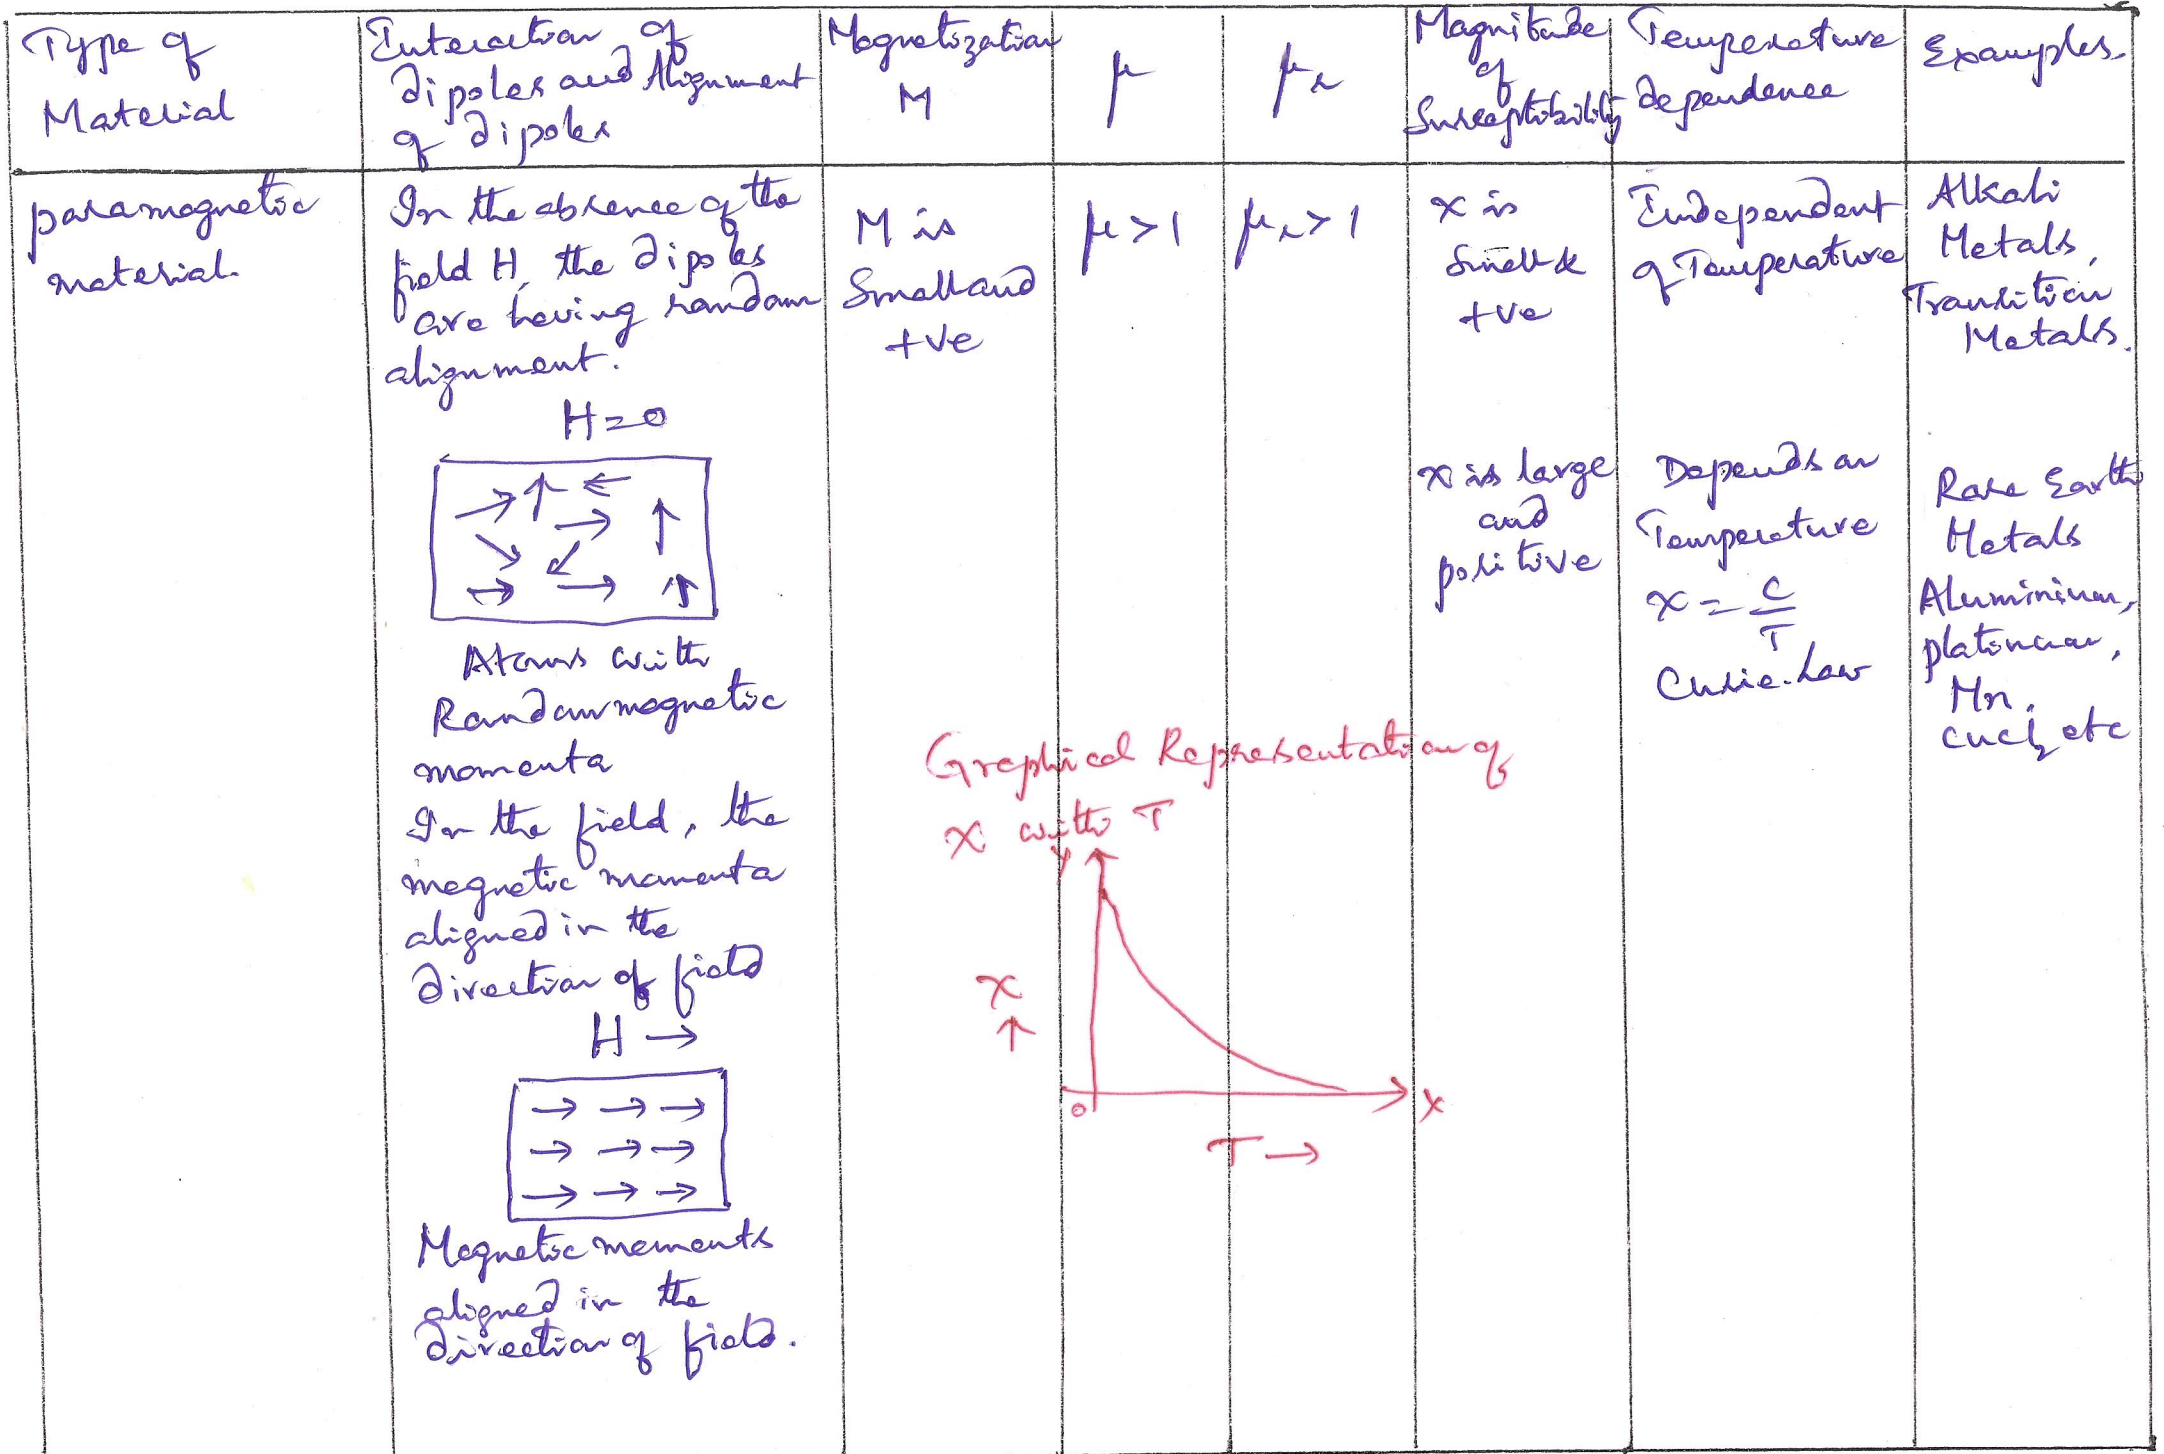 Type of
Material
Interaction of
dipoles and Alignment
of dipoles
Magnetization
M
μ
μr
Magnitude
of
Susceptibility
Temperature
dependence
Examples.
paramagnetic
material.
In the absence of the
field H, the dipoles
are having random
alignment.
H=0
Atoms with
Random magnetic
momenta
In the field, the
magnetic momenta
aligned in the
direction of field
H →
Magnetic moments
aligned in the
direction of field.
M is
Small and
+ve
μ>1
μr>1
x is
Small &
+ve
x is large
and
positive
Independent
of Temperature
Depends on
Temperature
x = C/T
Curie. Law
Alkali
Metals,
Transition
Metals.
Rare Earth
Metals
Aluminium,
platinum,
Mn,
CuCl2 etc
Graphical Representation of
X with T
Y
x
↑
0
X
T →